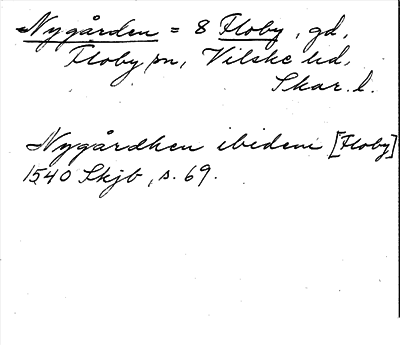 Nygården = 8 Floby, gd,
Floby sn, Vilske hd,
Skar. l.
Nygårdhen ibidem [Floby]
1540 Skjb, s. 69.